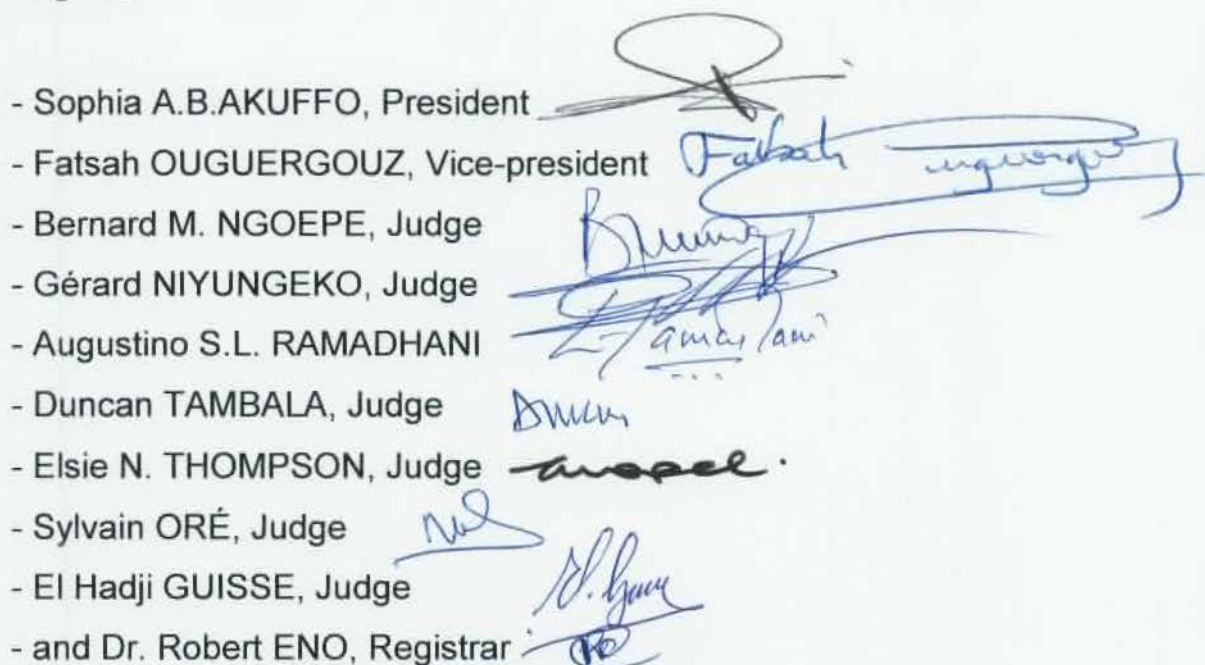 - Sophia A.B.AKUFFO, President
- Fatsah OUGUERGOUZ, Vice-president Fatsah Ouguergouz
- Bernard M. NGOEPE, Judge
- Gérard NIYUNGEKO, Judge
- Augustino S.L. RAMADHANI
- Duncan TAMBALA, Judge
- Elsie N. THOMPSON, Judge
- Sylvain ORÉ, Judge
- El Hadji GUISSE, Judge
- and Dr. Robert ENO, Registrar